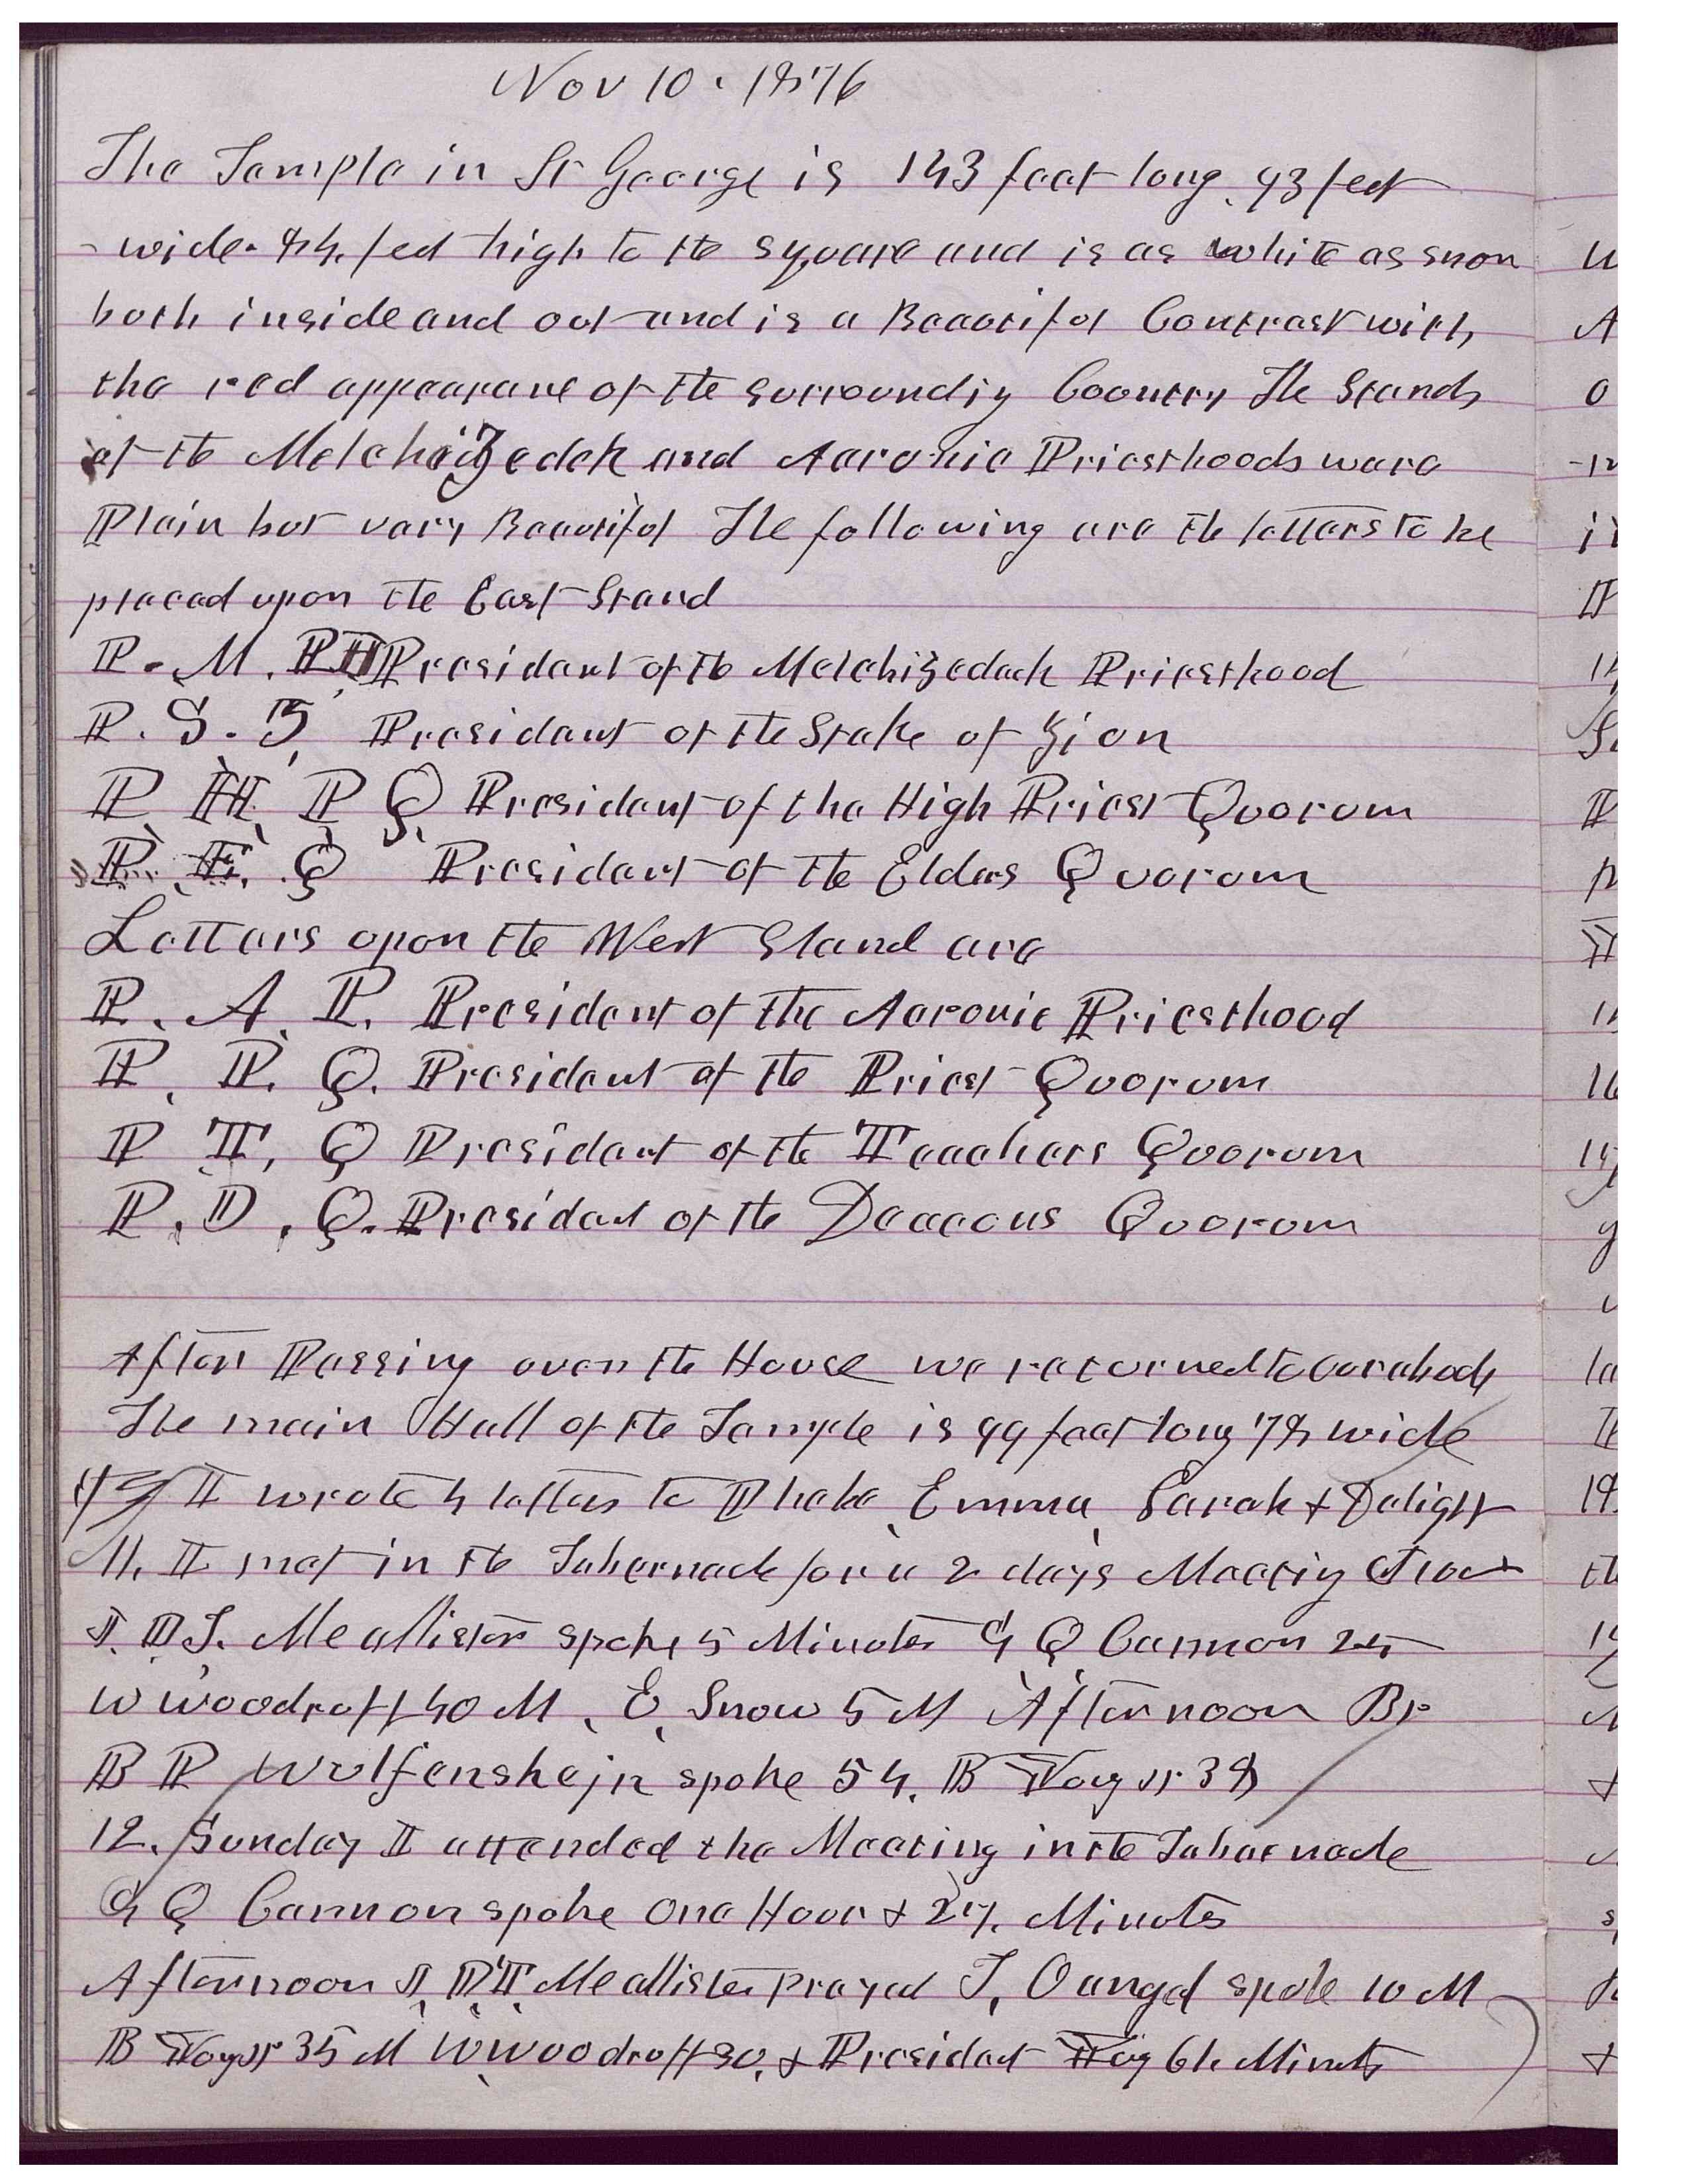 Nov 10 · 1876
The Temple in St George is 143 feet long. 93 feet
wide. 84. feet high to the square and is as white as snow
both inside and out and is a Beautiful Contrast with
the red appearance of the surrounding Country The Stands
of the Melchizedek and Aaronic Priesthoods were
Plain but very Beautiful The following are the letters to be
placed upon the East Stand
P. M. P President of the Melchizedeck Priesthood
P. S. Z President of the Stake of Zion
P H. P Q President of the High Priest Quorum
P. E. Q President of the Elders Quorum
Letters upon the West Stand are
P. A. P. President of the Aaronic Priesthood
P. P. Q. President of the Priest Quorum
P T. Q President of the Teachers Quorum
P. D. Q. President of the Deacons Quorum
After Passing over the House we returned to our abode
The main Hall of the Temple is 99 feet long 78 wide
I wrote 4 letters to Phebe Emma, Sarah & Delight
11. I met in the Tabernacle for a 2 days Meeting
J. D T. McAllister spoke 5 Minutes G Q Cannon 25
W Woodruff 40 M, E, Snow 5 M Afternoon Br
B P Wulfenshejn spoke 54. B Young jr 38
12. Sunday I attended the Meeting in the Tabernacle
G Q Cannon spoke One Hour & 27. Minutes
Afternoon J, D, T, McAllister prayed J, O angel spoke 10 M
B Young jr 35 M W Woodruff 30, & President Young 61. Minuts